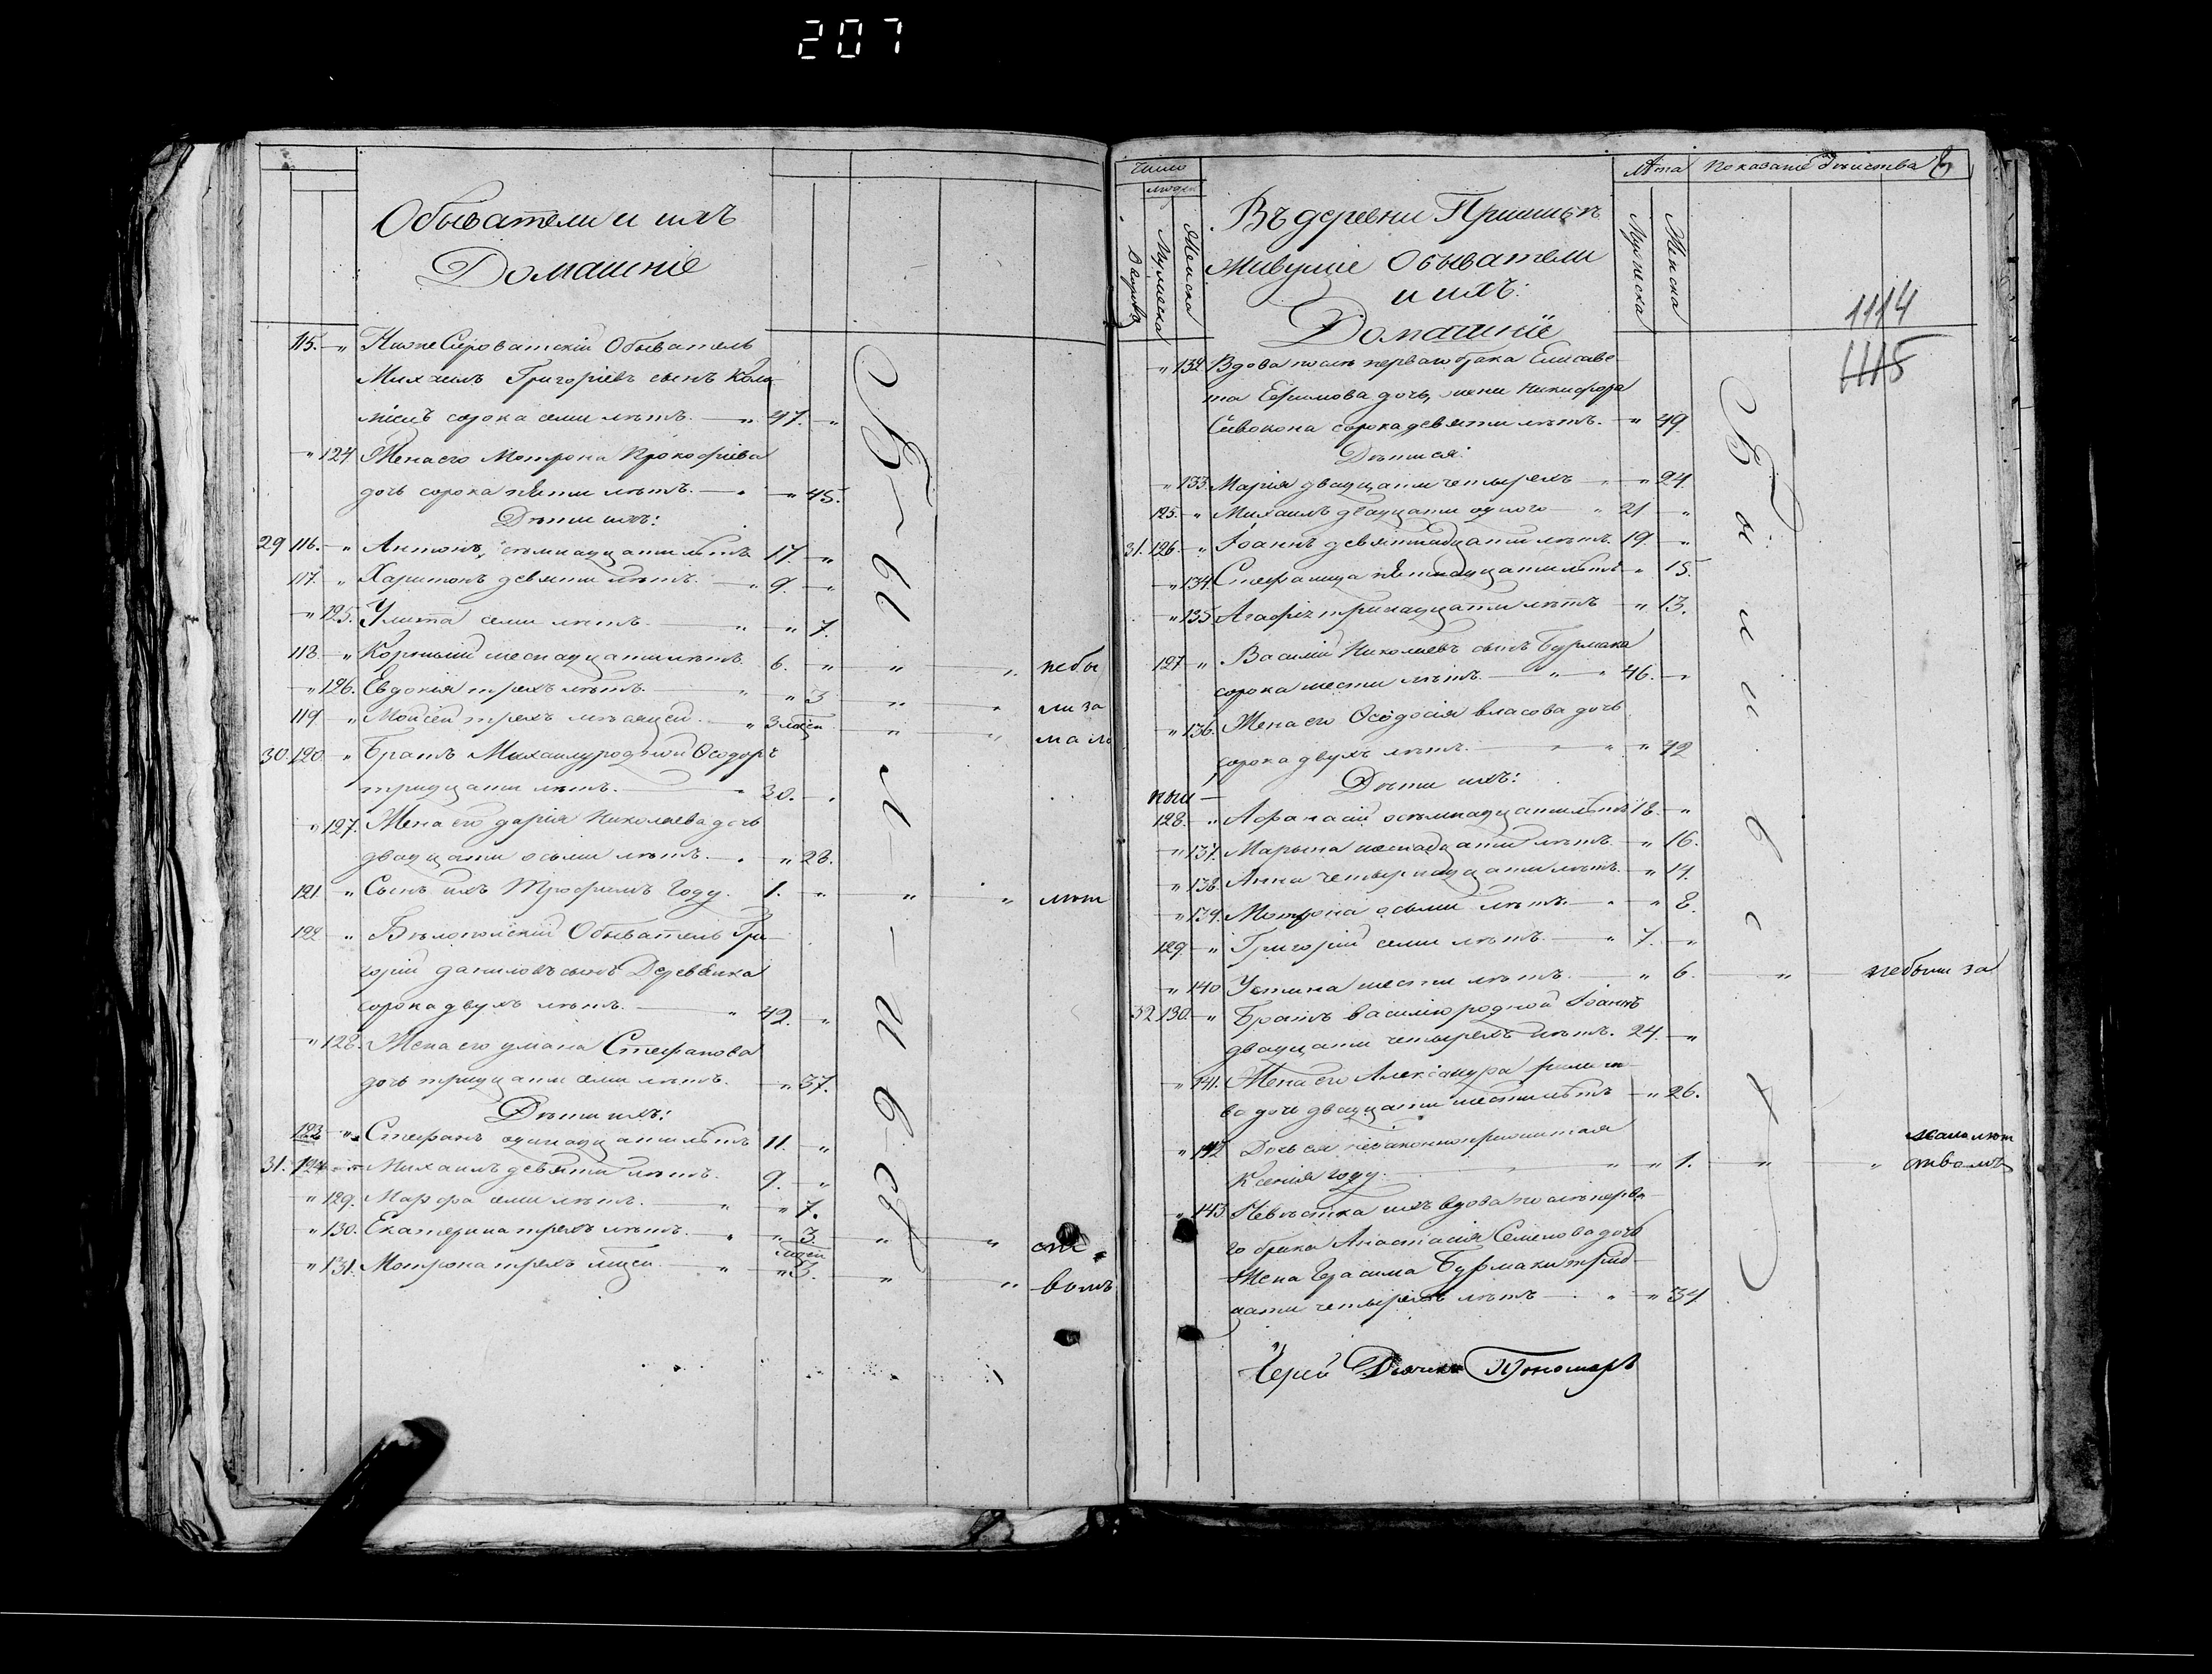 207
Обыватели и ихъ
Домашніе
115. " НижеСыроватскій Обыватель
Михаилъ Григоріевъ сынъ
сорока семи лѣтъ. — " 47. "
" 124 Жена его Мотрона Прокофіева
дочь сорока пяти лѣтъ. — " " 45.
Дѣти ихъ:
29 116. " Антонъ, семнадцати лѣтъ 17. "
117. " Харитонъ девяти лѣтъ. — " 9. "
" 125. Улита семи лѣтъ " " 7.
118 " лѣтъ 6. " " " небы
" 126. Евдокія трехъ лѣтъ. " " 3 " " ли за
119 " Моисей трехъ мѣсяцей. — " 3 " " мало
30. 120. " Братъ Михаилу родной Ѳеодоръ
тридцати лѣтъ. " 30. "
" 127. Жена его дарія Николаева дочь
двадцати осьми лѣтъ. — " " 28.
121. " Сынъ ихъ Трофимъ Году. 1. " " " лѣт
122 " Бѣлопольскій Обыватель Гри
горій даниловъ сынъ Деревянка
сорока двухъ лѣтъ. " 42. "
" 128. Жена его Стефанова
дочь тридцати семи лѣтъ. " 37.
Дѣти ихъ:
123 " Стефанъ одинадцати лѣтъ 11. "
31. 124 " Михаилъ девяти лѣтъ. 9. "
" 129. Марфа семи лѣтъ. — " " 7.
" 130. Екатерина трехъ лѣтъ. " " 3. " " ст
" 131. Мотрона трехъ " " 3. " " вомъ
Были
Число
людей
Дворовъ
Мужеска
Женска
Въ деревни
Живущіе Обыватели
и ихъ:
Домашніе
Лѣта
Мужеска
Женска
Показаніе дѣйства
1114
1115
" 132 Вдова послѣ перваго брака Елисаве
та Ефимова дочь, жена Никифора
Сивокона сорока девяти лѣтъ. — " 49
Дѣти ея:
" 133. Марія двадцати четырехъ " " 24.
125. " Михаилъ двадцати одного — " 21 "
31. 126. " Іоаннъ девятнадцати лѣтъ. 19. "
" 134. Стефанида пятнадцати лѣтъ " 15.
" 135 Агафія тринадцати лѣтъ " 13.
127 " Василій Николаевъ сынъ Бурмака
сорока шести лѣтъ. — " " 46. "
" 136. Жена его Ѳеодосія власова дочь
сорока двухъ лѣтъ. — " " " 42
Дѣти ихъ:
128. " Афанасій осьмнадцати лѣтъ 18. "
" 137. Марына шеснадцати лѣтъ. " 16.
" 138. Анна четырнадцати лѣтъ. " 14.
" 139. Мотрона осьми лѣтъ. — " " 8.
129. " Григорій семи лѣтъ. — " 7. "
" 140 Устина шести лѣтъ. — " 6. " небыли за
32 130. " Братъ василію родной Іоаннъ
двадцати четырехъ лѣтъ. 24. "
" 141. Жена его Александра
ва дочь двадцати шести лѣтъ " 26.
" 142 Дочь ея незаконноприжитая малолѣт
Ксенія году. " " " 1. " " ствомъ
" 143 Невѣстка ихъ вдова послѣ перва
го брака Анастасія Семенова дочь
Жена Герасима Бурмаки трид
цати четырехъ лѣтъ — " " 34.
Были всѣ
Іерей Дьячекъ Пономарь